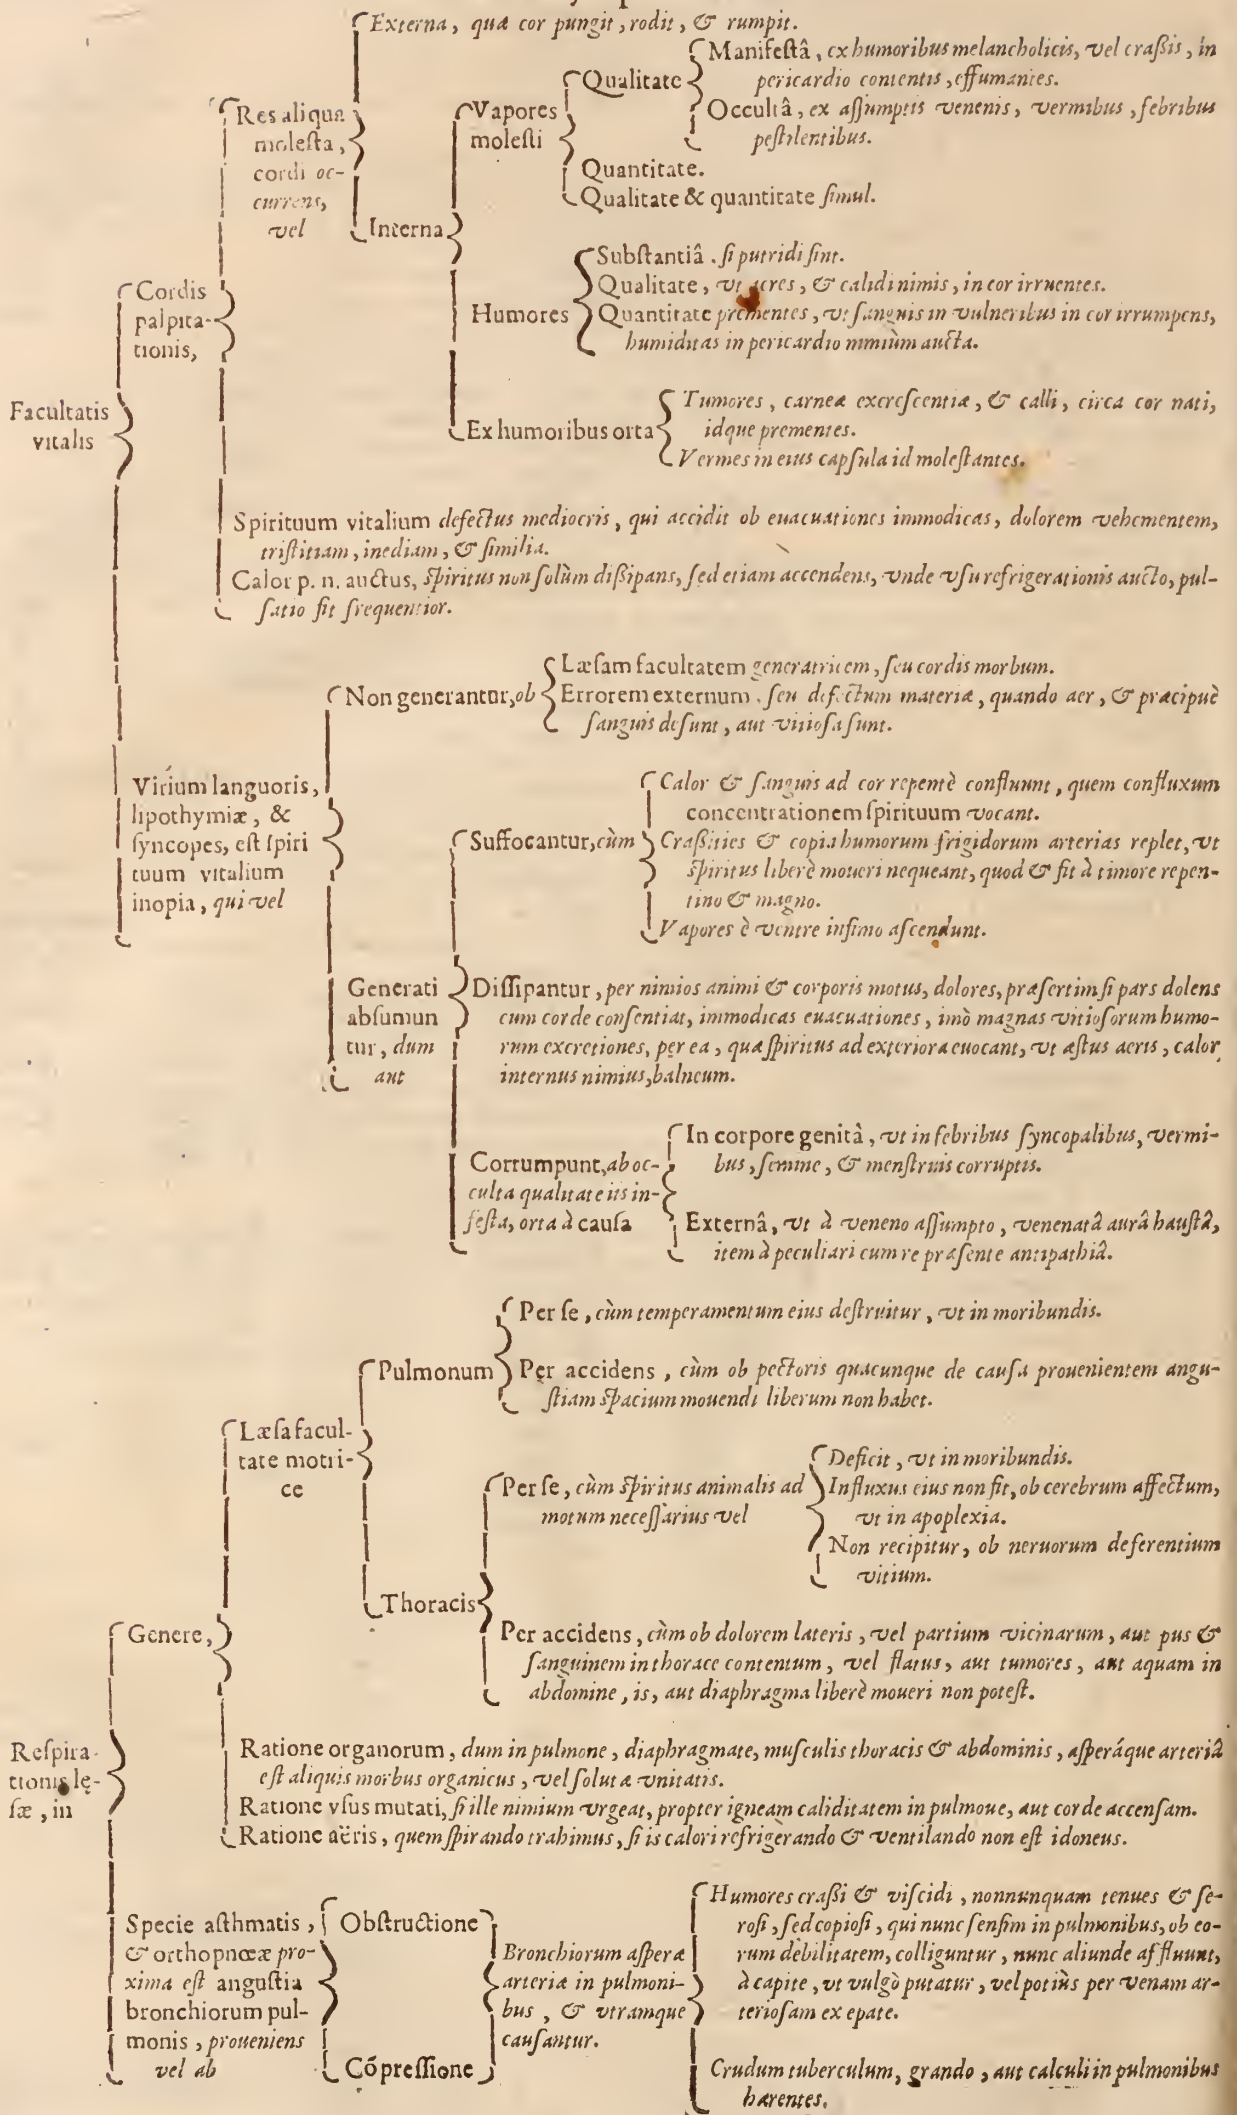 Externa, quæ cor pungit, rodit, & rumpit.
Res aliqua
molesta,
cordi oc-
currens,
vel
Interna
Vapores
molesti
Qualitate
Manifestâ, ex humoribus melancholicis, vel crassis, in
pericardio contentis, effumantes.
Occultâ, ex assumptis venenis, vermibus, febribus
pestilentibus.
Quantitate.
Qualitate & quantitate simul.
Humores
Substantiâ. si putridi sint.
Qualitate, vt acres, & calidi nimis, in cor irruentes.
Quantitate prementes, vt sanguis in vulneribus in cor irrumpens,
humiditas in pericardio nimiùm aucta.
Ex humoribus orta
Tumores, carneæ excrescentiæ, & calli, circa cor nati,
idque prementes.
Vermes in eius capsula id molestantes.
Cordis
palpita-
tionis,
Facultatis
vitalis
Spirituum vitalium defectus mediocris, qui accidit ob euacuationes immodicas, dolorem vehementem,
tristitiam, inediam, & similia.
Calor p. n. auctus, spiritus non solùm dissipans, sed etiam accendens, vnde vsu refrigerationis aucto, pul-
satio fit frequentior.
Non generantur, ob
Læsam facultatem generatricem, seu cordis morbum.
Errorem externum. seu defectum materiæ, quando aer, & præcipuè
sanguis desunt, aut vitiosa sunt.
Virium languoris,
lipothymiæ, &
syncopes, est spiri
tuum vitalium
inopia, qui vel
Suffocantur, cùm
Calor & sanguis ad cor repentè confluunt, quem confluxum
concentrationem spirituum vocant.
Crassities & copia humorum frigidorum arterias replet, vt
spiritus liberè moueri nequeant, quod & fit à timore repen-
tino & magno.
Vapores è ventre infimo ascendunt.
Generati
absumun
tur, dum
aut
Dissipantur, per nimios animi & corporis motus, dolores, præsertim si pars dolens
cum corde consentiat, immodicas euacuationes, imò magnas vitiosorum humo-
rum excretiones, per ea, quæ spiritus ad exteriora euocant, vt æstus aeris, calor
internus nimius, balneum.
Corrumpunt, ab oc-
culta qualitate iis in-
festa, orta à causa
In corpore genitâ, vt in febribus syncopalibus, vermi-
bus, semine, & menstruis corruptis.
Externâ, vt à veneno assumpto, venenatâ aurâ haustâ,
item à peculiari cum re præsente antipathiâ.
Pulmonum
Per se, cùm temperamentum eius destruitur, vt in moribundis.
Per accidens, cùm ob pectoris quacunque de causa prouenientem angu-
stiam spacium mouendi liberum non habet.
Læsa facul-
tate motri-
ce
Thoracis
Per se, cùm spiritus animalis ad
motum necessarius vel
Deficit, vt in moribundis.
Influxus eius non fit, ob cerebrum affectum,
vt in apoplexia.
Non recipitur, ob neruorum deferentium
vitium.
Per accidens, cùm ob dolorem lateris, vel partium vicinarum, aut pus &
sanguinem in thorace contentum, vel flatus, aut tumores, aut aquam in
abdomine, is, aut diaphragma liberè moueri non potest.
Genere,
Respira-
tionis lę-
sæ, in
Ratione organorum, dum in pulmone, diaphragmate, musculis thoracis & abdominis, asperáque arteriâ
est aliquis morbus organicus, vel solutæ vnitatis.
Ratione vsus mutati, si ille nimium vrgeat, propter igneam caliditatem in pulmone, aut corde accensam.
Ratione aëris, quem spirando trahimus, si is calori refrigerando & ventilando non est idoneus.
Specie asthmatis,
& orthopnœæ pro-
xima est angustia
bronchiorum pul-
monis, proueniens
vel ab
Obstructione
Cōpressione
Bronchiorum asperæ
arteriæ in pulmoni-
bus, & vtramque
causantur.
Humores crassi & viscidi, nonnunquam tenues & se-
rosi, sed copiosi, qui nunc sensim in pulmonibus, ob eo-
rum debilitatem, colliguntur, nunc aliunde affluunt,
à capite, vt vulgò putatur, vel potiùs per venam ar-
teriosam ex epate.
Crudum tuberculum, grando, aut calculi in pulmonibus
hærentes.